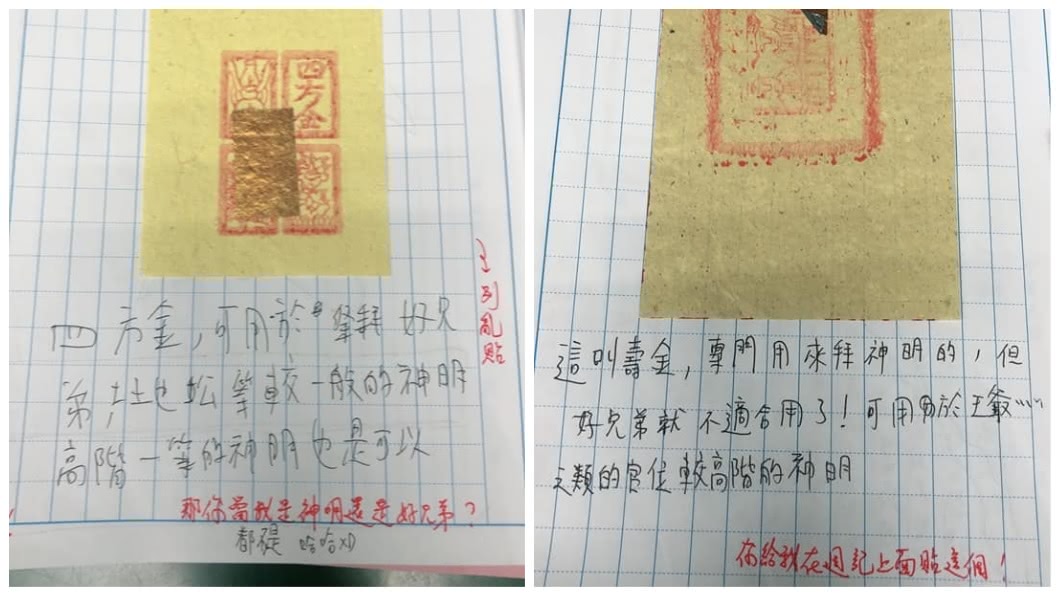 四方金
四方金，可用於拜好兄
弟,土地公等較一般的神明
高階一等的神明也是可以
那你當我是神明還是好兄弟？
都是 哈哈XD
亂貼
這叫壽金，專門用來拜神明的，但
好兄弟就不適合用了！可用於王爺……
之類的官位較高階的神明
你給我在週記上面貼這個！